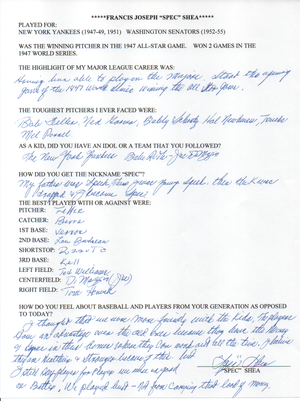 *****FRANCIS JOSEPH "SPEC" SHEA*****
PLAYED FOR:
NEW YORK YANKEES (1947-49, 1951) WASHINGTON SENATORS (1952-55)
WAS THE WINNING PITCHER IN THE 1947 ALL-STAR GAME. WON 2 GAMES IN THE
1947 WORLD SERIES.
THE HIGHLIGHT OF MY MAJOR LEAGUE CAREER WAS:
Having been able to play in the Majors. Start the opening
game of the 1947 World Series winning the All Star Game.
THE TOUGHEST PITCHERS I EVER FACED WERE:
Bob Feller, Ned Garver, Bobby Shantz, Hal Newhouser,
Mel Parnell
AS A KID, DID YOU HAVE AN IDOL OR A TEAM THAT YOU FOLLOWED?
The New York Yankees Babe Ruth - Joe DiMaggio
HOW DID YOU GET THE NICKNAME "SPEC"?
My father was Speck, I was young Speck. then the K was
dropped & I became Spec.
THE BEST I PLAYED WITH OR AGAINST WERE:
PITCHER: Feller
CATCHER: Berra
1ST BASE: Vernon
2ND BASE: Lou Boudreau
SHORTSTOP: Rizzuto
3RD BASE: Kell
LEFT FIELD: Ted Williams
CENTERFIELD: DiMaggio (Joe)
RIGHT FIELD: Tom
HOW DO YOU FEEL ABOUT BASEBALL AND PLAYERS FROM YOUR GENERATION AS OPPOSED
TO TODAY?
I thought that we were more friendly with the kids. The players
have an advantage over the old
because they have the money
this
& stronger because of this. But
I still say player for player we were as good
or better. We played ball - not from coming that kind of money.
Spec Shea
"SPEC" SHEA